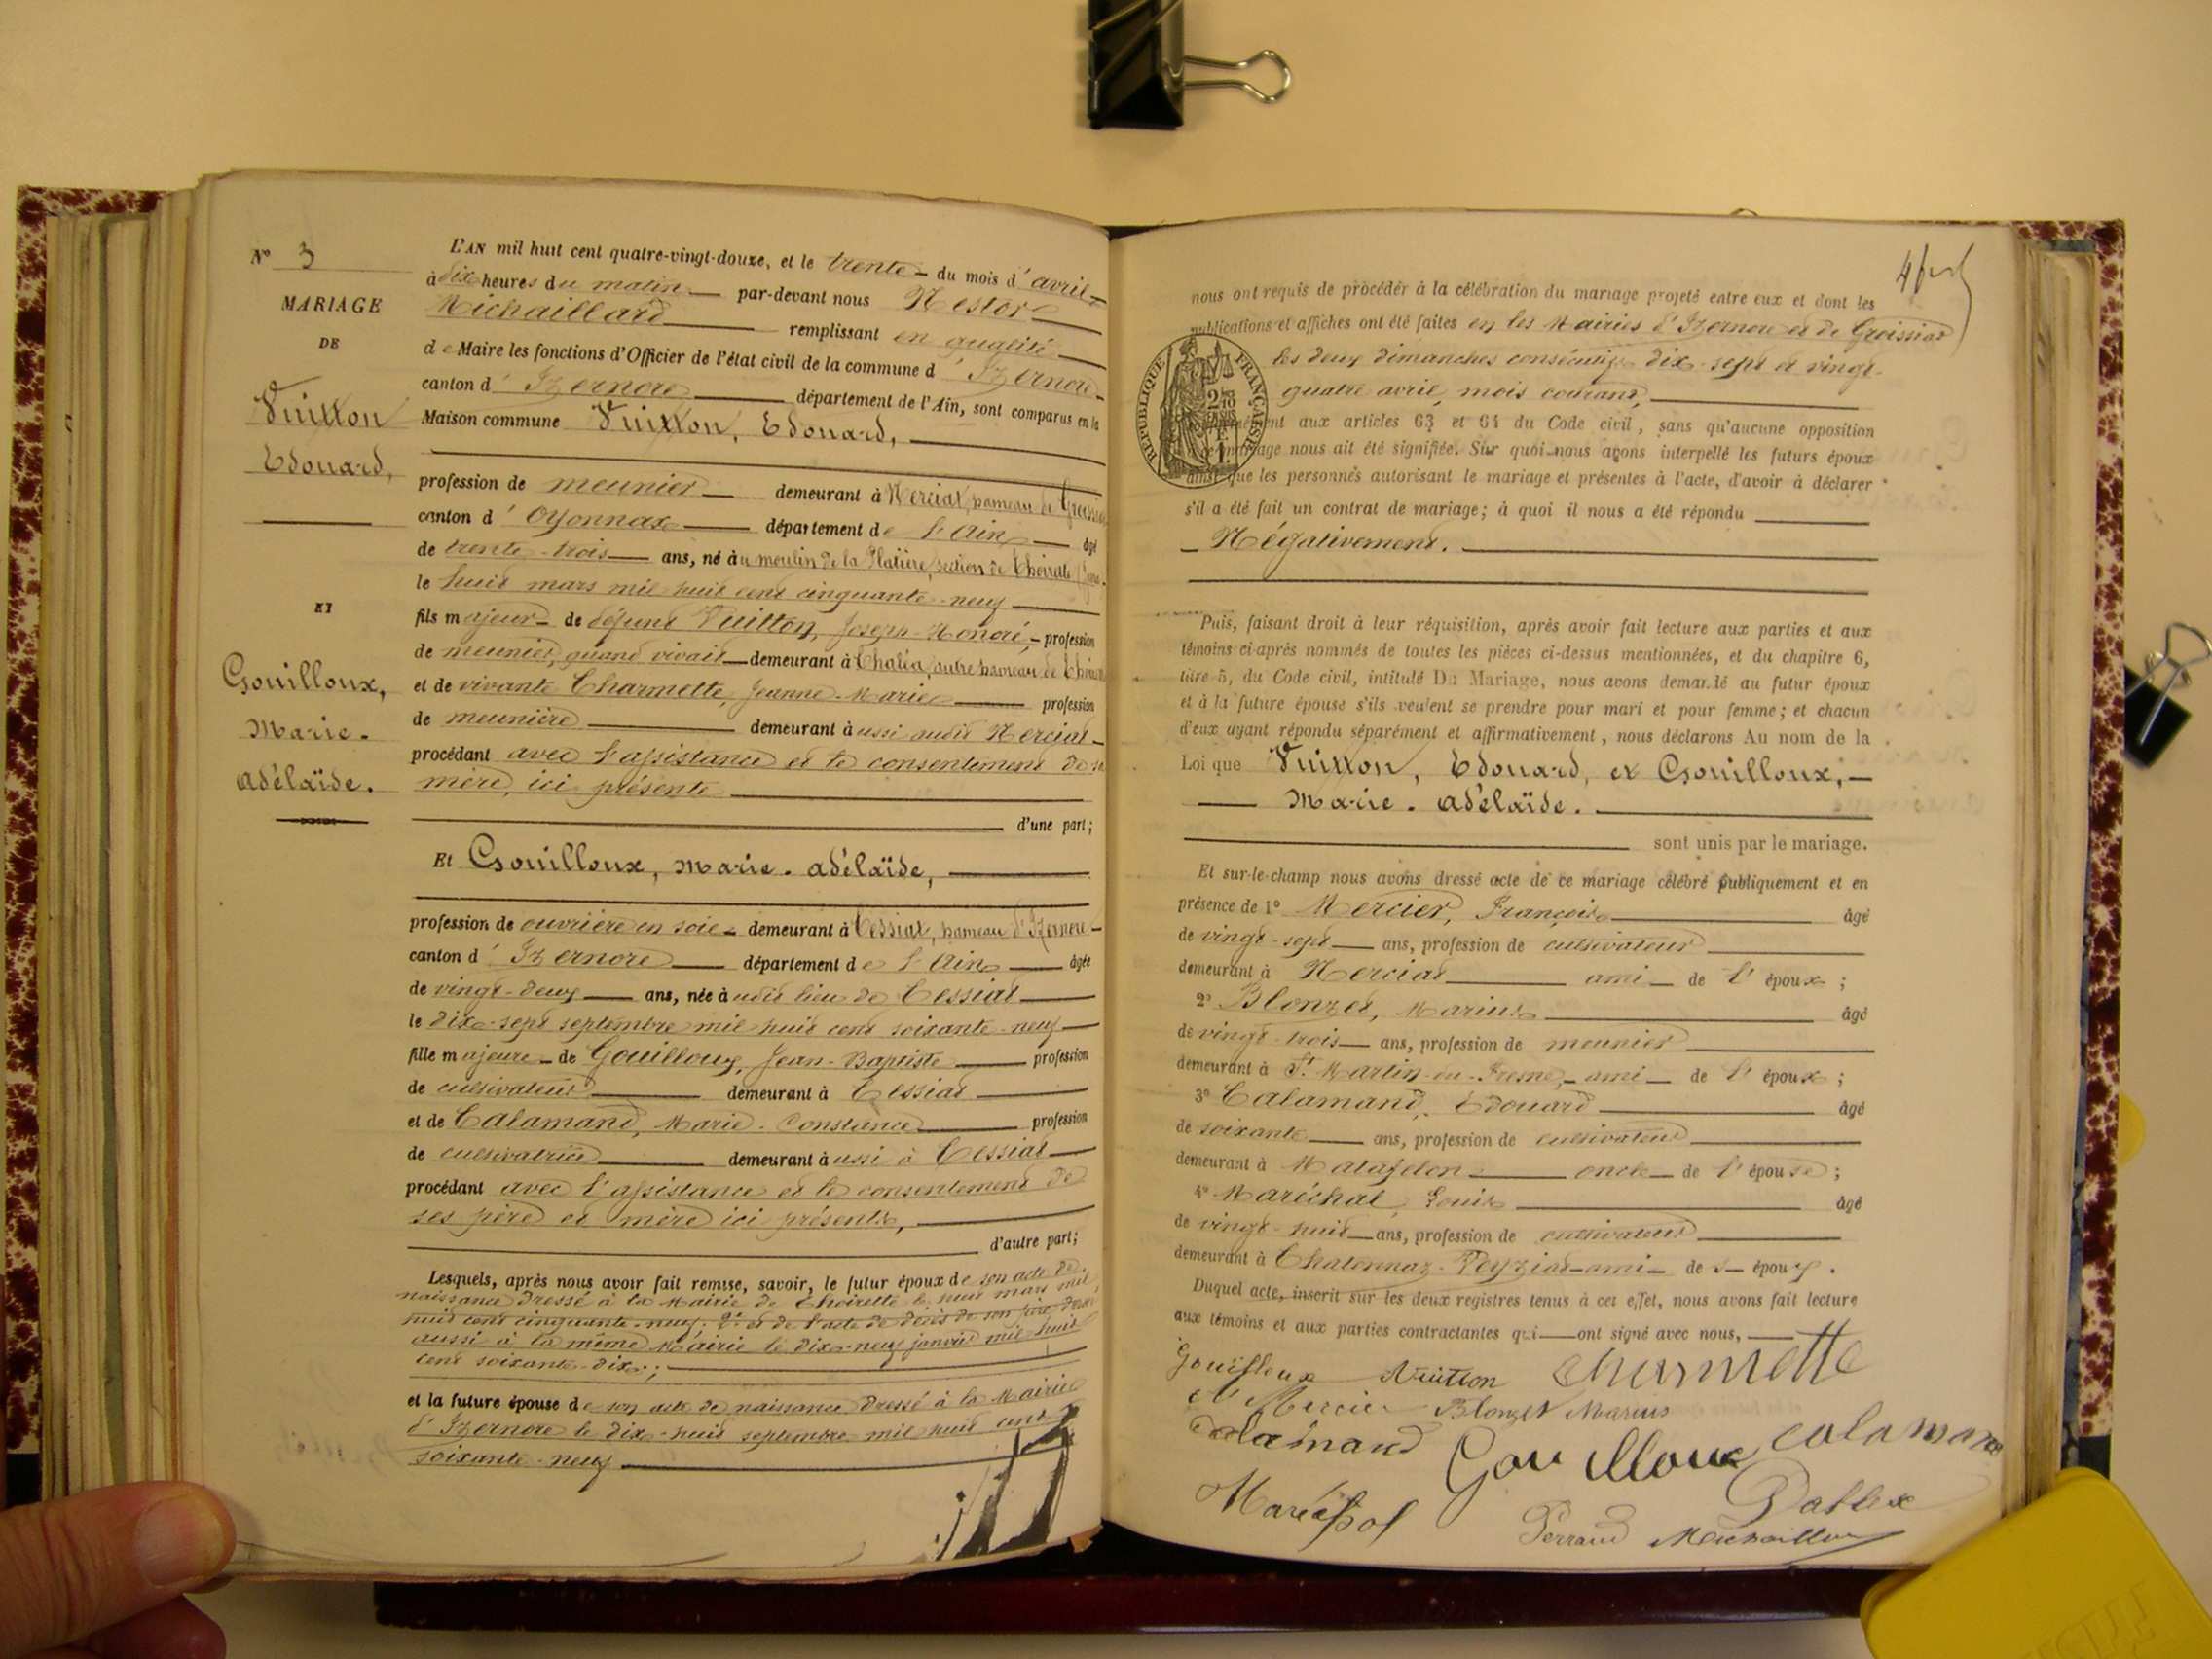 N° 3
MARIAGE
DE
Vuitton
Edouard,
ET
Gouilloux,
Marie-
Adélaïde.
L'AN mil huit cent quatre-vingt-douze, et le trente du mois d'avril
à dix heures du matin par-devant nous Nestor
Michaillard remplissant en qualité
de Maire les fonctions d'Officier de l'état civil de la commune d'Izernore
canton d'Izernore département de l'Ain, sont comparus en la
Maison commune Vuitton, Edouard,
profession de meunier demeurant à Nerciat, hameau de
canton d'Oyonnax département de l'Ain âgé
de trente-trois ans, né au moulin de la Platière, section de Thoirette
le huit mars mil huit cent cinquante-neuf
fils majeur de défunt Vuitton, Joseph-Honoré, profession
de meunier, quand vivait demeurant à Chaléa, autre hameau de
et de vivante Charmette, Jeanne-Marie profession
de meunière demeurant aussi audit Nerciat
procédant avec l'assistance et le consentement de sa
mère, ici présente
d'une part;
Et Gouilloux, Marie-Adélaïde,
profession de ouvrière en soie demeurant à Tessiat, hameau d'Izernore
canton d'Izernore département de l'Ain âgée
de vingt-deux ans, née audit lieu de Tessiat
le dix-sept septembre mil huit cent soixante-neuf
fille majeure de Gouilloux, Jean-Baptiste profession
de cultivateur demeurant à Tessiat
et de Calamand, Marie-Constance profession
de cultivatrice demeurant aussi à Tessiat
procédant avec l'assistance et le consentement de
ses père et mère ici présents,
d'autre part;
Lesquels, après nous avoir fait remise, savoir, le futur époux de son acte de
naissance dressé à la Mairie de Thoirette le huit mars mil
huit cent cinquante-neuf; 2° et de l'acte de décès de son père dressé
aussi à la même Mairie le dix-neuf janvier mil huit
cent soixante-dix;
et la future épouse de son acte de naissance dressé à la Mairie
d'Izernore le dix-huit septembre mil huit cent
soixante-neuf
nous ont requis de procéder à la célébration du mariage projeté entre eux et dont les
publications et affiches ont été faites en les Mairies d'Izernore et de Groissiat
les deux dimanches consécutifs dix-sept et vingt-
quatre avril, mois courant,
RÉPUBLIQUE FRANÇAISE
aux articles 63 et 64 du Code civil, sans qu'aucune opposition
mariage nous ait été signifiée. Sur quoi nous avons interpellé les futurs époux
ainsi que les personnes autorisant le mariage et présentes à l'acte, d'avoir à déclarer
s'il a été fait un contrat de mariage; à quoi il nous a été répondu
Négativement.
Puis, faisant droit à leur réquisition, après avoir fait lecture aux parties et aux
témoins ci-après nommés de toutes les pièces ci-dessus mentionnées, et du chapitre 6,
titre 5, du Code civil, intitulé Du Mariage, nous avons demandé au futur époux
et à la future épouse s'ils veulent se prendre pour mari et pour femme; et chacun
d'eux ayant répondu séparément et affirmativement, nous déclarons Au nom de la
Loi que Vuitton, Edouard, et Gouilloux,
Marie-Adélaïde.
sont unis par le mariage.
Et sur-le-champ nous avons dressé acte de ce mariage célébré publiquement et en
présence de 1° Mercier, François âgé
de vingt-sept ans, profession de cultivateur
demeurant à Nerciat ami de l'époux;
2° Blonzet, Marius âgé
de vingt-trois ans, profession de meunier
demeurant à St Martin-du-Fresne, ami de l'époux;
3° Calamand, Edouard âgé
de soixante ans, profession de cultivateur
demeurant à Matafelon oncle de l'épouse;
4° Maréchal, Louis âgé
de vingt-huit ans, profession de cultivateur
demeurant à Chatonnaz-Veyziat ami des époux.
Duquel acte, inscrit sur les deux registres tenus à cet effet, nous avons fait lecture
aux témoins et aux parties contractantes qui ont signé avec nous,
Gouilloux Vuitton Charmette
Mercier Blonzet Marius
Calamand Gouilloux Calamand
Maréchal
Perraud Michaillard